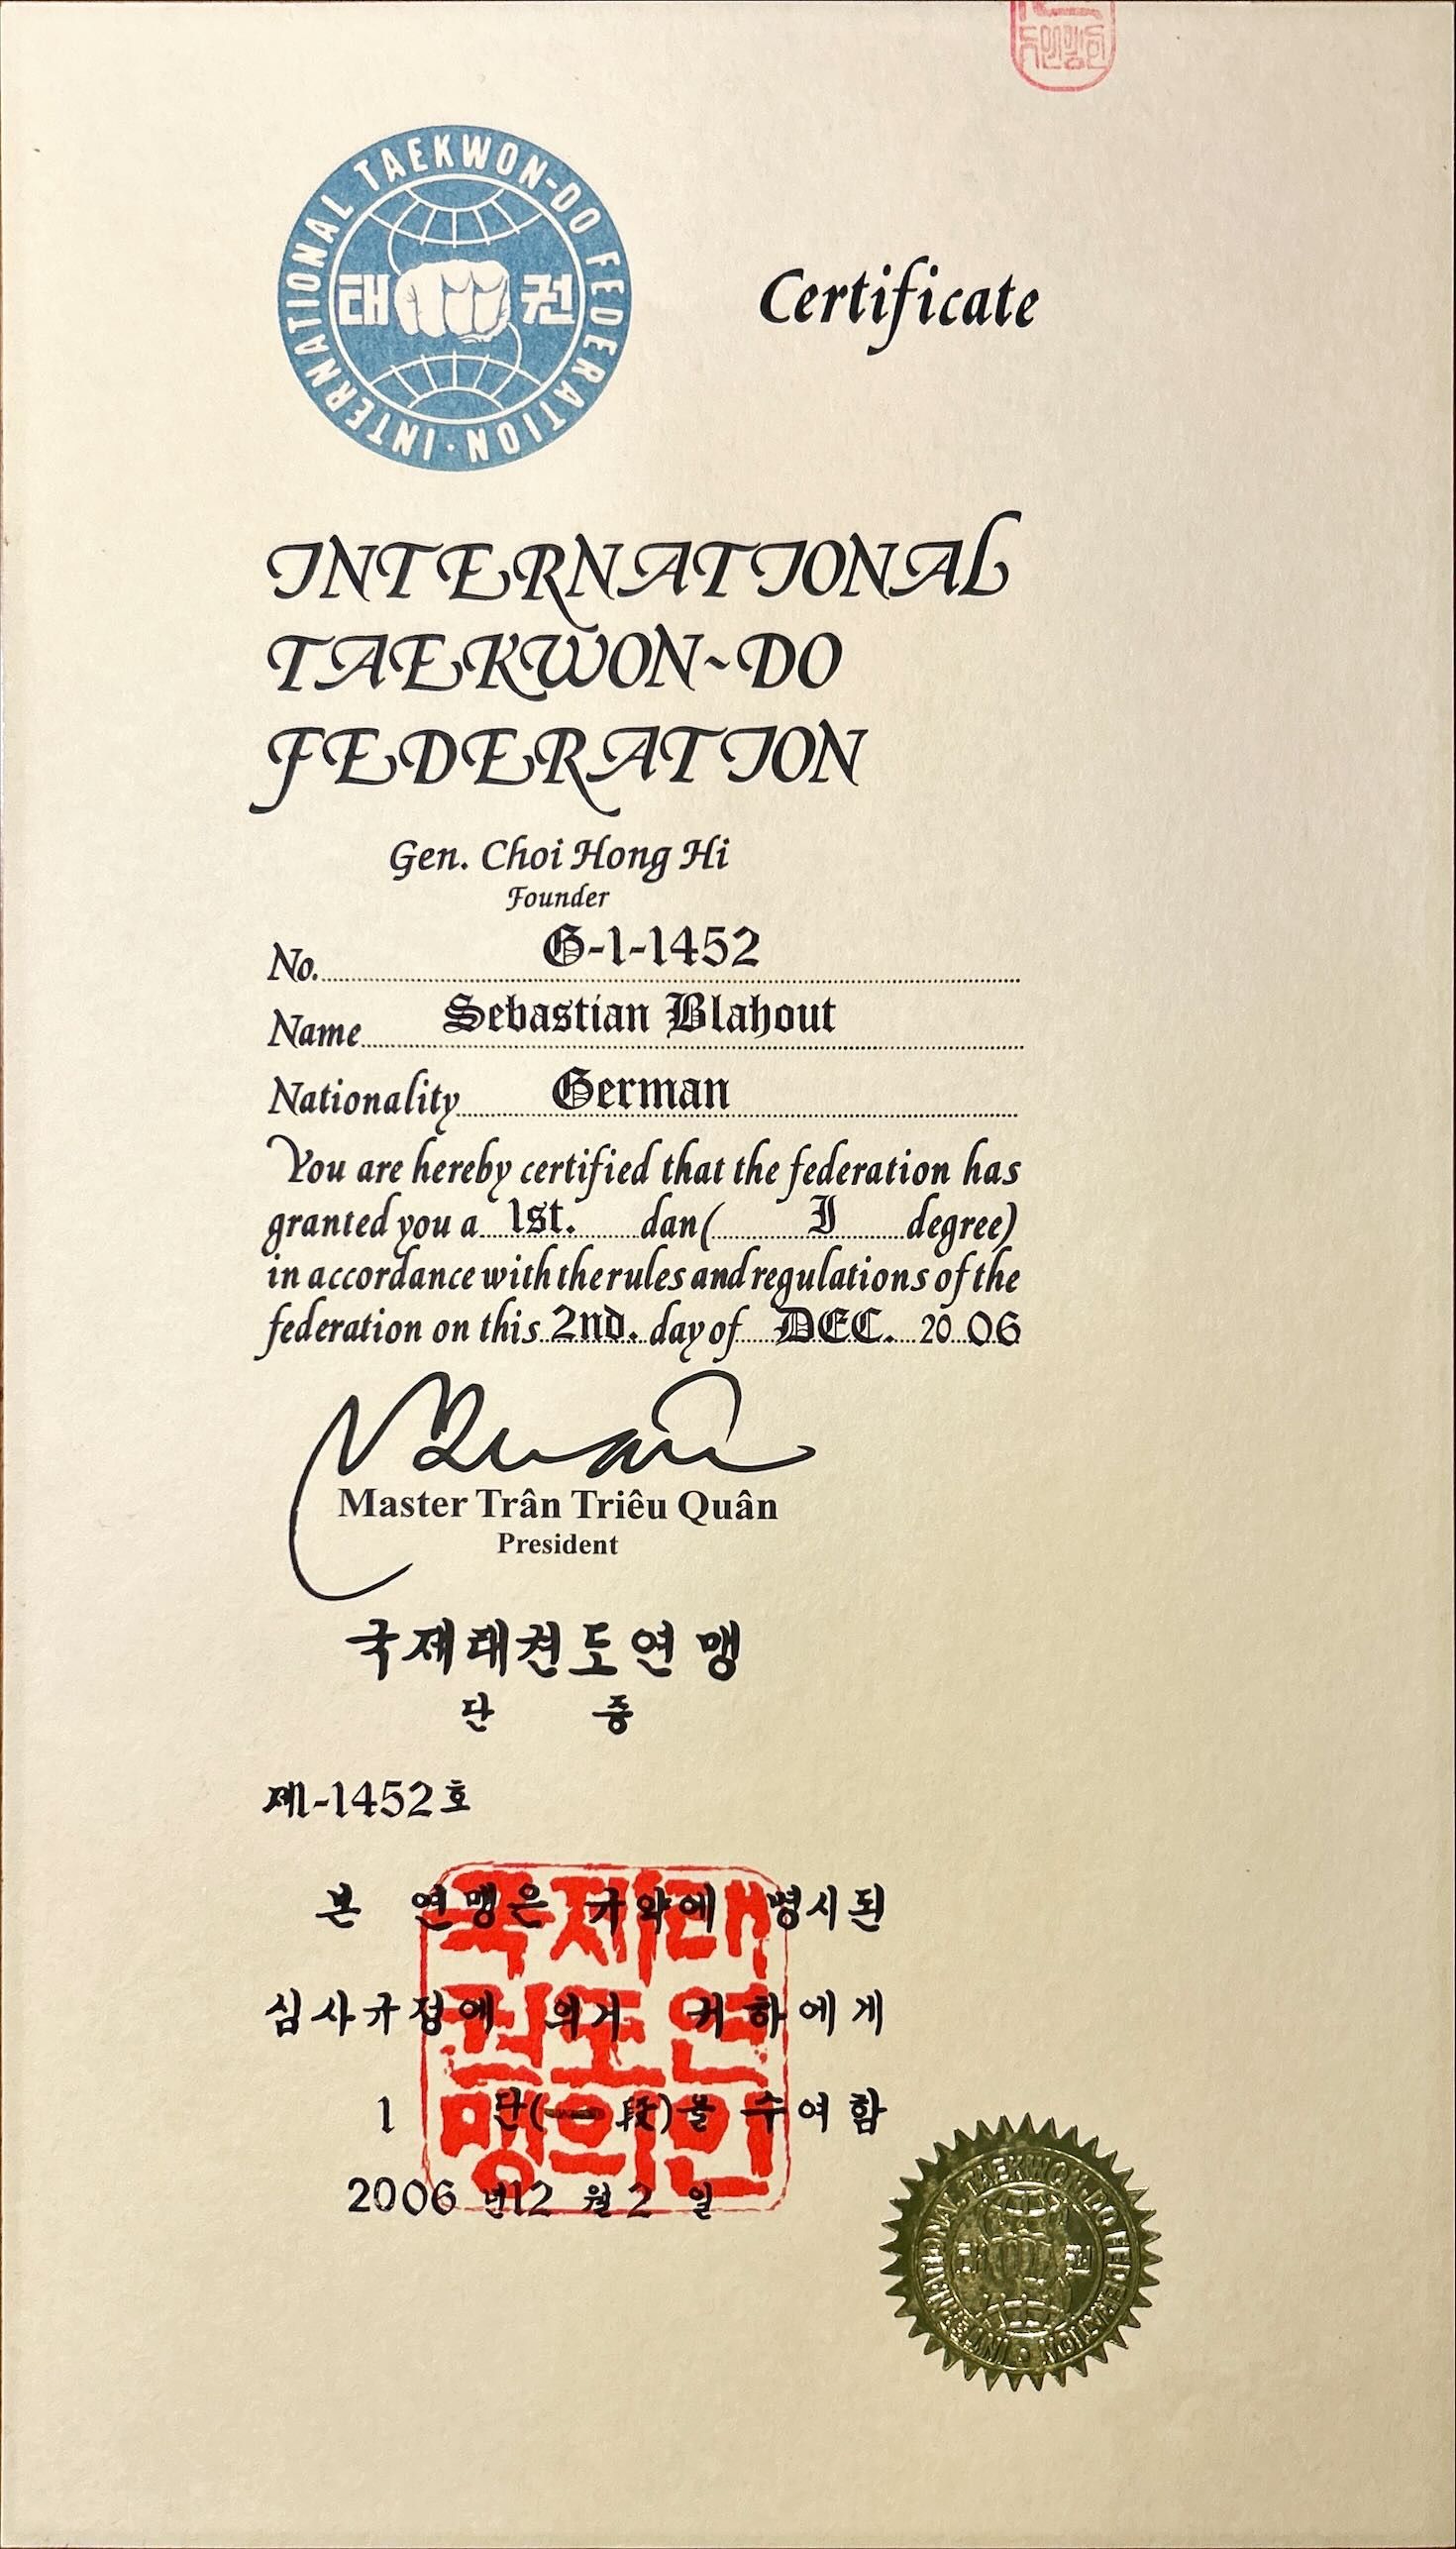 INTERNATIONAL TAEKWON-DO FEDERATION ·
태 권
Certificate
INTERNATIONAL
TAEKWON-DO
FEDERATION
Gen. Choi Hong Hi
Founder
No. G-1-1452
Name Sebastian Blahout
Nationality German
You are hereby certified that the federation has
granted you a 1st. dan ( I degree)
in accordance with the rules and regulations of the
federation on this 2nd. day of DEC. 20 06
Quân
Master Trân Triêu Quân
President
국제태권도연맹
단 증
제1-1452호
본 연맹은 규약에 명시된
심사규정에 의거 귀하에게
1 단(一 段)을 수여함
2006 년12 월 2 일
국제태
권도연
맹의인
INTERNATIONAL TAEKWON-DO FEDERATION ·
태 권